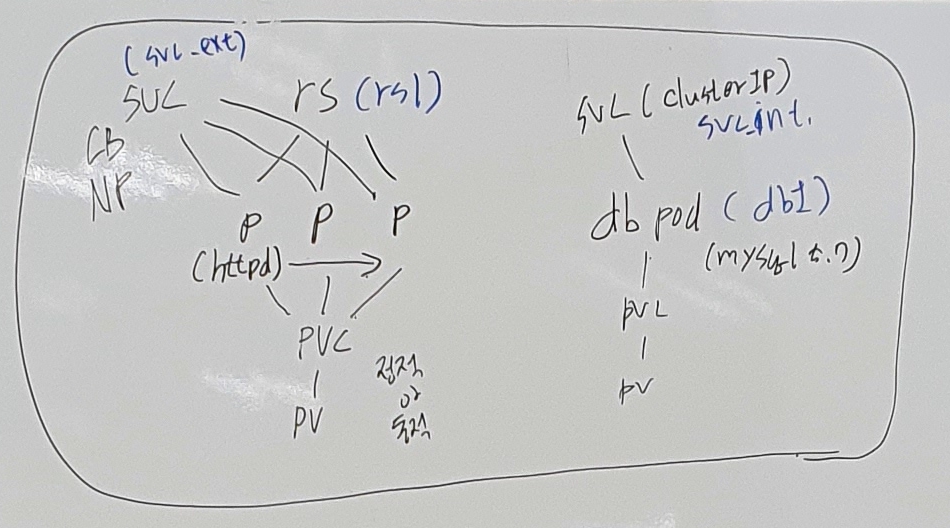 (svc_ext)
SVC
rs (rs1)
LB
NP
P P P
(httpd)
PVC
PV
정적
or
동적
svc (clusterIP)
svc_int.
db pod (db1)
(mysql 5.7)
pvc
pv